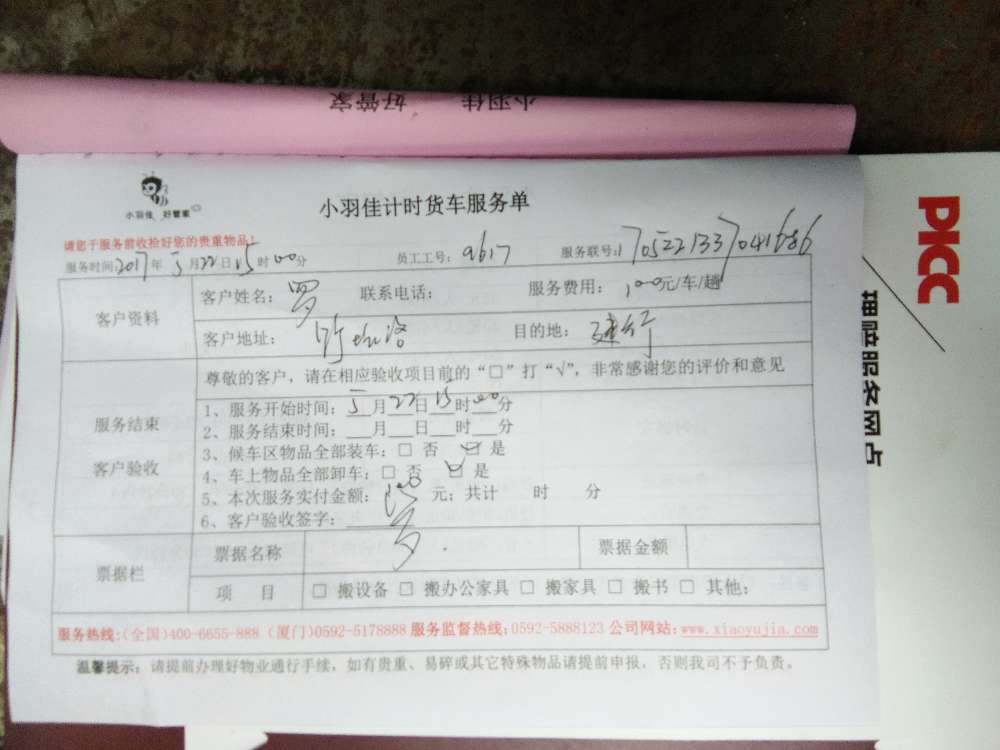 小羽佳 好管家
小羽佳 好管家
小羽佳计时货车服务单
请您于服务前收捡好您的贵重物品！
服务时间：2017年5月22日15时00分 员工工号：9617 服务联号：1705221337041686
客户资料
客户姓名：罗 联系电话： 服务费用：100元/车/趟
客户地址： 目的地：建行
服务结束
客户验收
尊敬的客户，请在相应验收项目前的“□”打“√”，非常感谢您的评价和意见
1、服务开始时间：5月22日15时00分
2、服务结束时间：___月___日___时___分
3、候车区物品全部装车：□ 否 ☑ 是
4、车上物品全部卸车：□ 否 ☑ 是
5、本次服务实付金额：100元；共计 时 分
6、客户验收签字：
票据栏
票据名称 票据金额
项 目 □ 搬设备 □ 搬办公家具 □ 搬家具 □ 搬书 □ 其他：
服务热线：(全国)400-6655-888 (厦门)0592-5178888 服务监督热线：0592-5888123 公司网站：www.xiaoyujia.com
温馨提示：请提前办理好物业通行手续，如有贵重、易碎或其它特殊物品请提前申报，否则我司不予负责。
PICC
理赔服务网点